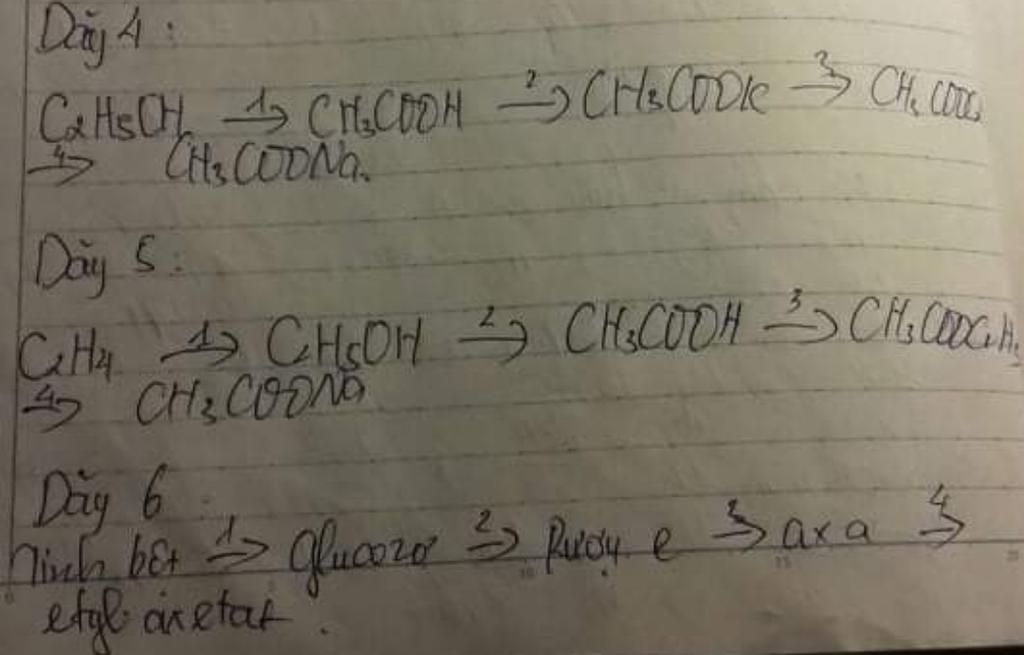 Dãy 4 :
C2H5OH 1→ CH3COOH 2→ CH3COOK 3→ CH3COO
4→ CH3COONa.
Dãy 5 :
C2H4 1→ C2H5OH 2→ CH3COOH 3→ CH3COOC2H5
4→ CH3COONa
Dãy 6 :
Tinh bột 1→ Glucozơ 2→ Rượu e 3→ axa 4→
etyl axetat .